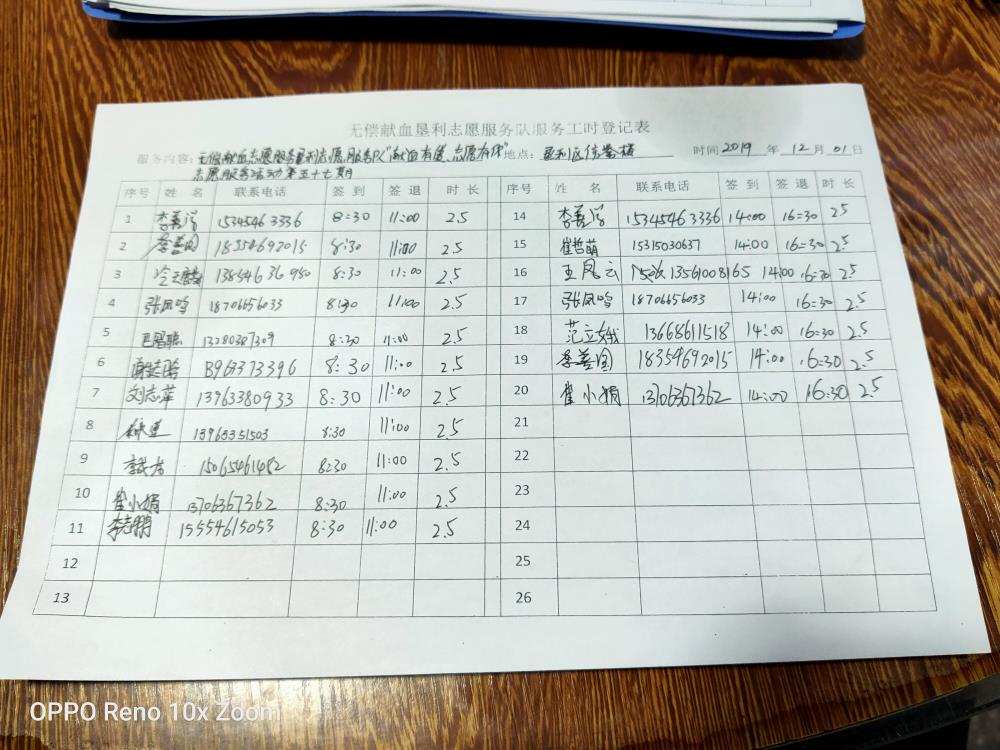 无偿献血垦利志愿服务队服务工时登记表
服务内容：无偿献血志愿服务垦利志愿服务队"献血有偿 志愿有你" 地点： 垦利区 时间 2019 年 12 月 01 日
志愿服务活动第五十七期
序号 姓 名 联系电话 签 到 签 退 时 长 序号 姓 名 联系电话 签 到 签 退 时 长
1 李善 15345463336 8:30 11:00 2.5 14 李善 15345463336 14:00 16:30 2.5
2 李善国 18354692015 8:30 11:00 2.5 15 崔哲萌 15315030637 14:00 16:30 2.5
3 13854636950 8:30 11:00 2.5 16 王凤云 13561008165 14:00 16:30 2.5
4 张凤鸣 18706656033 8:30 11:00 2.5 17 张凤鸣 18706656033 14:00 16:30 2.5
5 13280387309 8:30 11:00 2.5 18 范立娥 13668611518 14:00 16:30 2.5
6 8:30 11:00 2.5 19 李善国 18354692015 14:00 16:30 2.5
7 刘志苹 13963380933 8:30 11:00 2.5 20 崔小娟 13706367362 14:00 16:30 2.5
8 13963351503 8:30 11:00 2.5 21
9 15065461482 8:30 11:00 2.5 22
10 崔小娟 13706367362 8:30 11:00 2.5 23
11 李志鹏 15554615053 8:30 11:00 2.5 24
12 25
13 26
OPPO Reno 10x Zoom